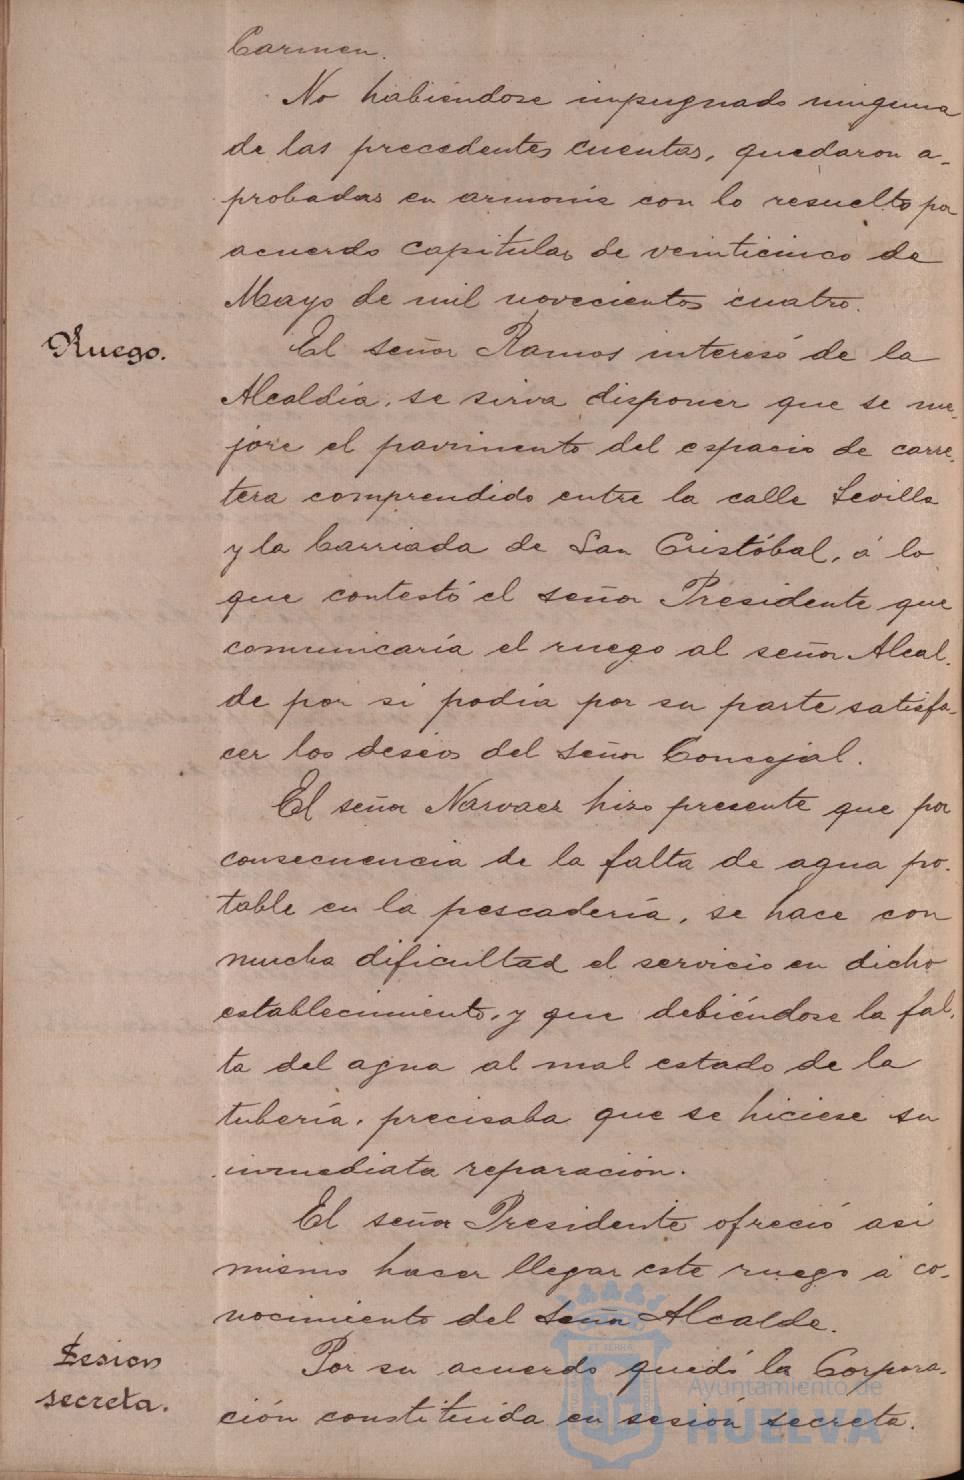 Carmen.
No habiéndose impugnado ninguna
de las precedentes cuentas, quedaron a-
probadas en armonía con lo resuelto por
acuerdo capitular de veinticinco de
Mayo de mil novecientos cuatro.
Ruego.
El señor Ramos interesó de la
Alcaldía, se sirva disponer que se me-
jore el pavimento del espacio de carre-
tera comprendido entre la calle Sevilla
y la barriada de San Cristóbal, á lo
que contestó el señor Presidente que
comunicaría el ruego al señor Alcal-
de por si podía por su parte satisfa-
cer los deseos del señor Concejal.
El señor Narvaez hizo presente que por
consecuencia de la falta de agua po-
table en la pescadería, se hace con
mucha dificultad el servicio en dicho
establecimiento, y que debiéndose la fal-
ta del agua al mal estado de la
tubería, precisaba que se hiciese su
inmediata reparación.
El señor Presidente ofreció asi
mismo hacer llegar este ruego á co-
nocimiento del Señor Alcalde.
Sesion
secreta.
Por su acuerdo quedó la Corpora-
ción constituida en sesión secreta.
Ayuntamiento de
HUELVA